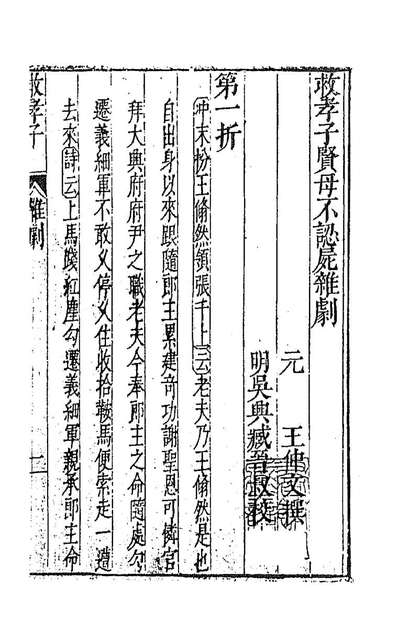 救孝子賢母不認屍雜劇
元 王仲文撰
明吳興臧晉叔校
第一折
冲末扮王脩然領張千上云老夫乃王脩然是也
自出身以來跟隨郎主累建奇功謝聖恩可憐官
拜大興府府尹之職老夫今奉郎主之命隨處勾
遷義細軍不敢乂停乂住收拾鞍馬便索走一遭
去來詩云上馬踐紅塵勾遷義細軍親承郎主命
救孝子
雜劇
一